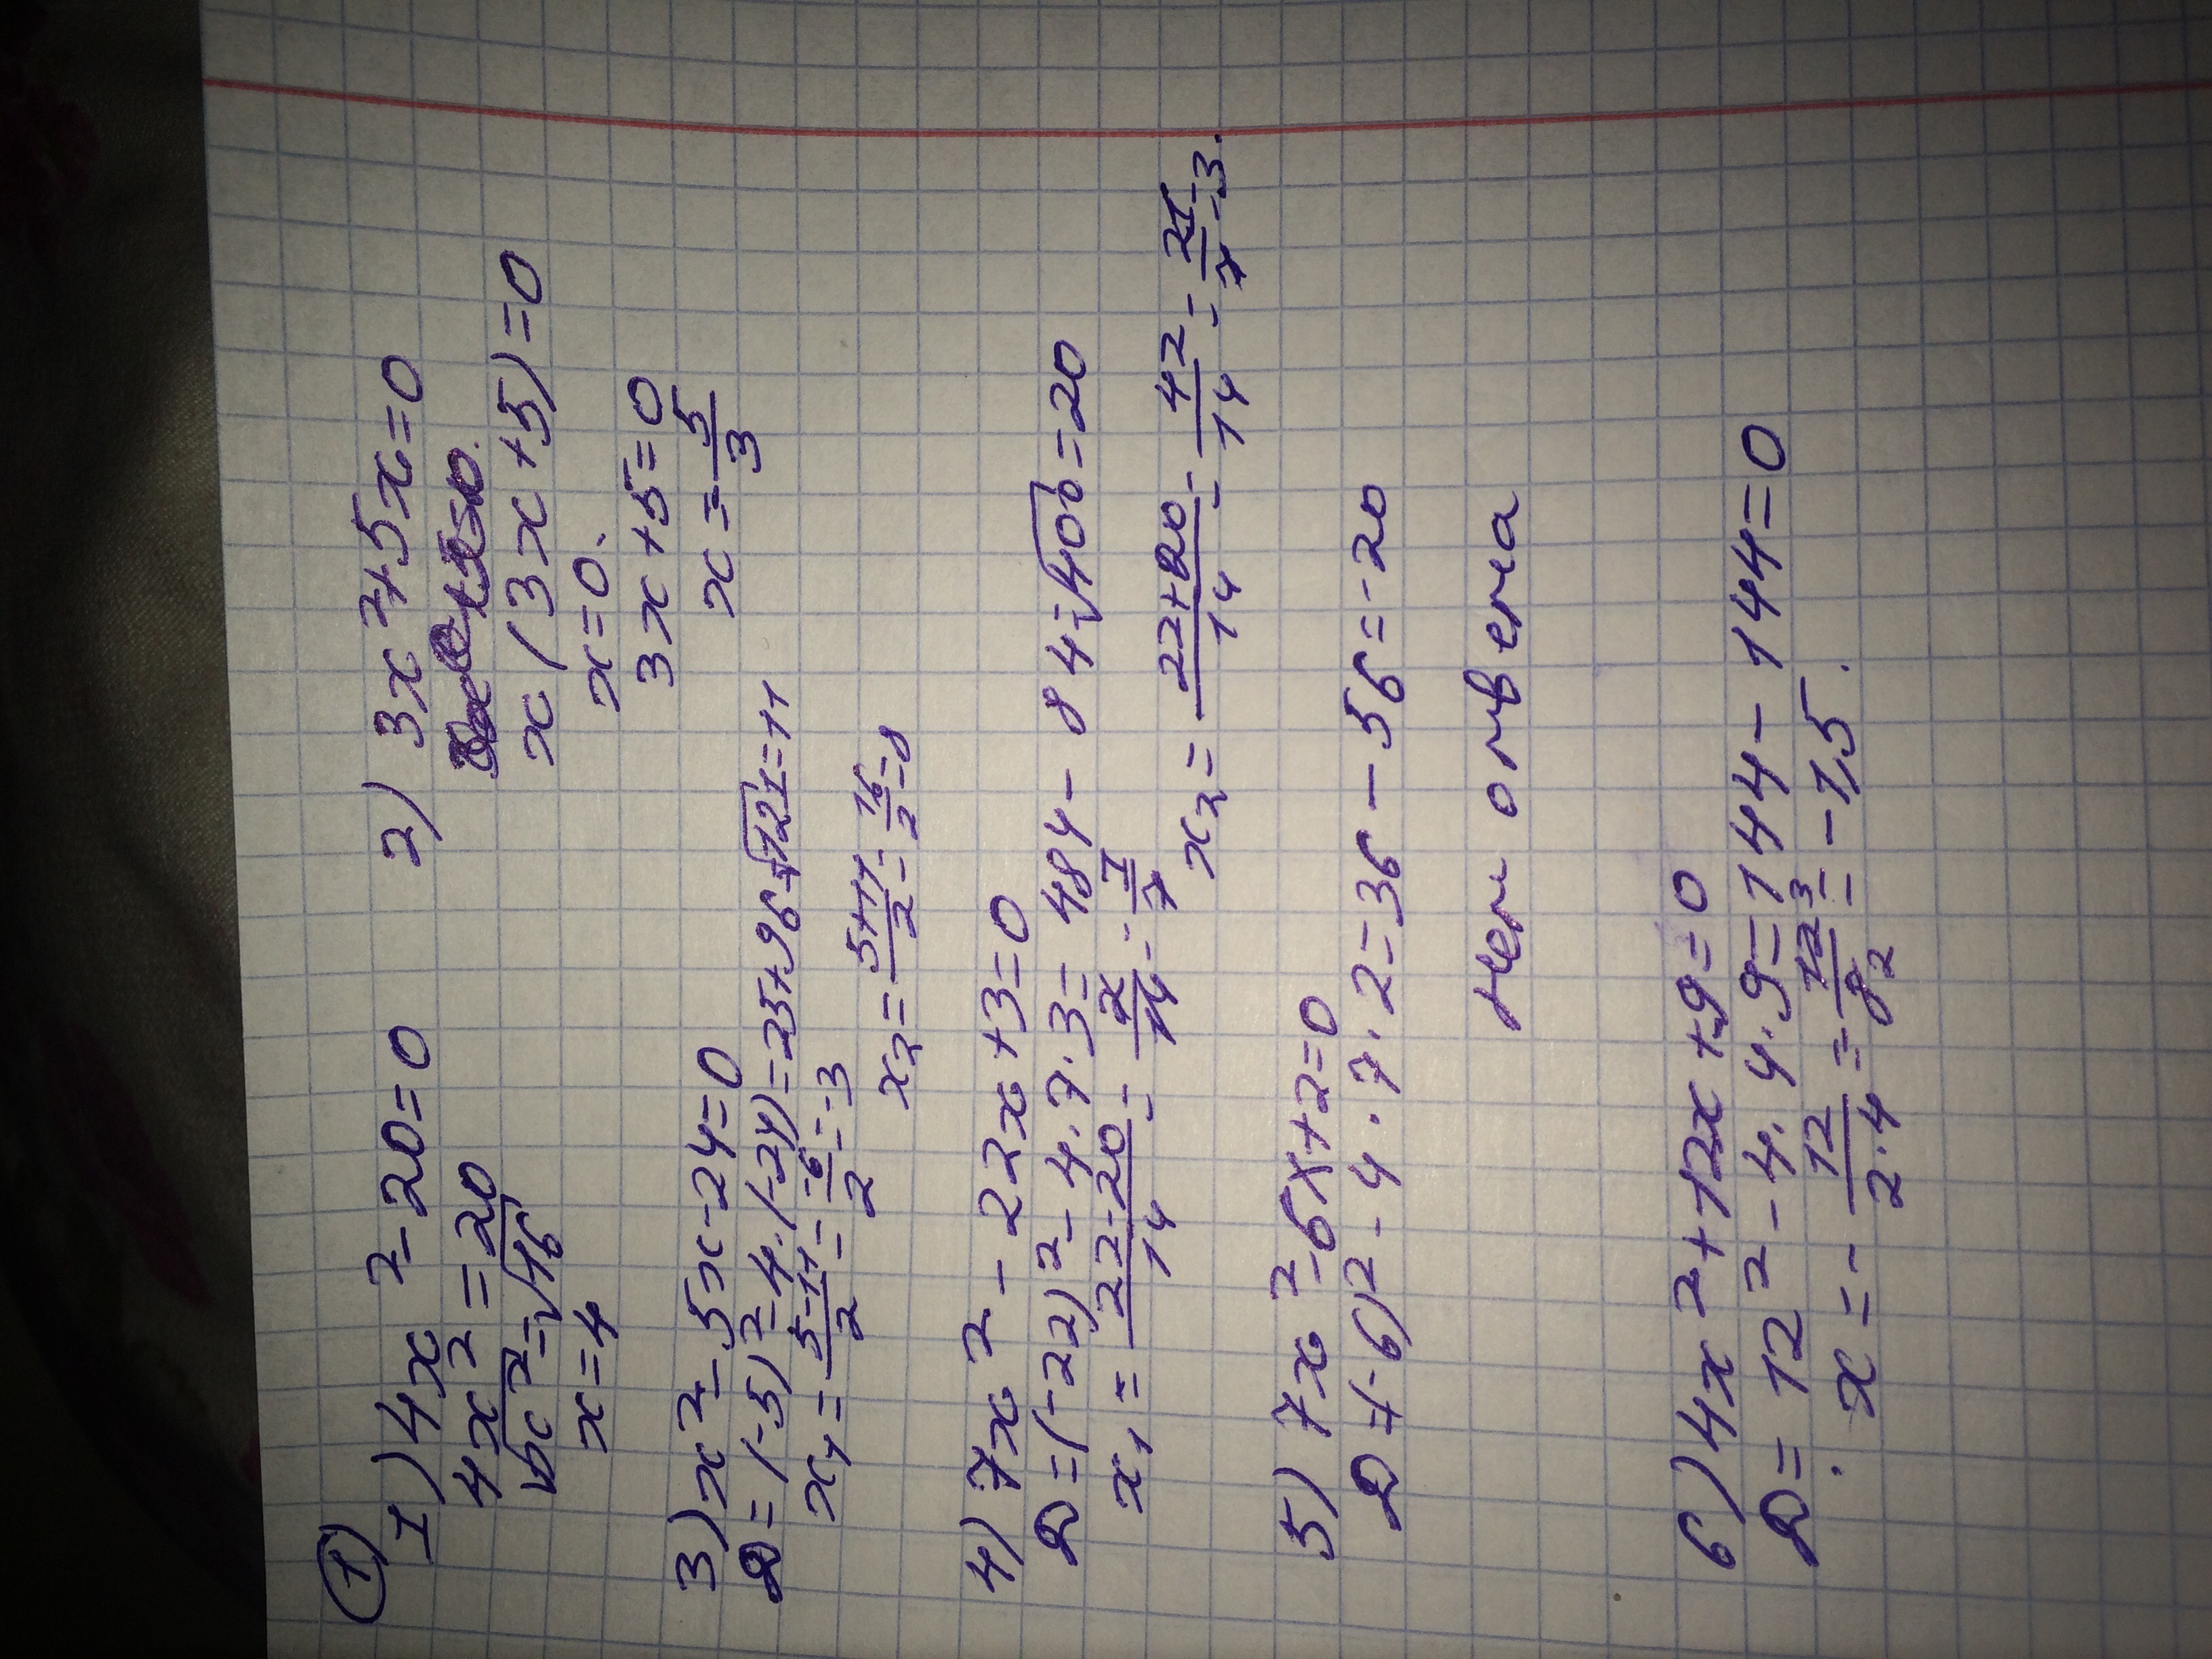 ①
1) 4x² - 20 = 0
4x² = 20
√x² = √16
x = 4
2) 3x² + 5x = 0
x(3x + 5) = 0
x = 0.
3x + 5 = 0
x = -5/3
3) x² - 5x - 24 = 0
D = (-5)² - 4·(-24) = 25 + 96 = √121 = 11
x₁ = (5-11)/2 = -6/2 = -3
x₂ = (5+11)/2 = 16/2 = 8
4) 7x² - 22x + 3 = 0
D = (-22)² - 4·7·3 = 484 - 84 = √400 = 20
x₁ = (22-20)/14 = 2/14 = 1/7
x₂ = (22+20)/14 = 42/14 = 21/7 = 3.
5) 7x² - 6x + 2 = 0
D = (-6)² - 4·7·2 = 36 - 56 = -20
Нет ответа
6) 4x² + 12x + 9 = 0
D = 12² - 4·4·9 = 144 - 144 = 0
x = - 12/2·4 = - 12/8 = 3/2 = -1,5.